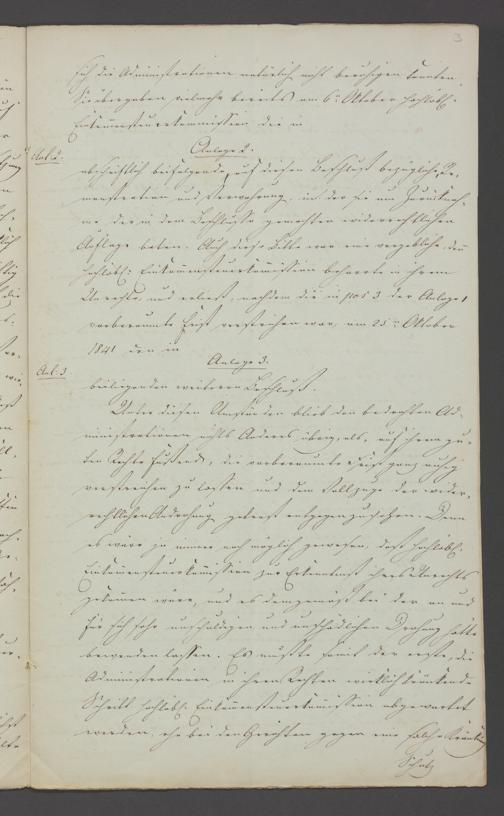 3
sich die Administrationen natürlich nicht beruhigen konnten.
Sie übergaben vielmehr bereits am 6ten Oktober hochlöbl.
Einkommensteuerkommission die in
Anl: 2.
Anlage 2.
abschriftlich beifolgende, auf diesen Beschluß bezügliche Re-
monstration und Verwahrung, in der sie um Zurücknah-
me der in dem Beschlusse gemachten widerrechtlichen
Auflage baten. Auch diese Bitte war eine vergebliche, denn
hochlöbl: Einkommensteuerkommission beharrte in ihrem
Unrechte, und erließ, nachdem die in pos 3 der Anlage 1
anberaumte Frist verstrichen war, am 25ten Oktober
1841 den in
Anl: 3
Anlage 3.
beiliegenden weiteren Beschluß.
Unter diesen Umständen blieb den bedachten Ad-
ministrationen nichts Anderes übrig, als, auf ihrem gu-
ten Rechte fußend, die anberaumte Frist ganz ruhig
verstreichen zu lassen und dem Vollzuge der wider-
rechtlichen Androhung getrost entgegenzusehen. Denn
es wäre ja immer noch möglich gewesen, daß hochlöbl.
Einkommensteuerkommission zur Erkenntniß ihres Unrechts
gekommen wäre, und es demgemäß bei der an und
für sich sehr unschuldigen und unschädlichen Drohung hätte
bewenden lassen. Es mußte somit der erste, die
Administrationen in ihren Rechten wirklich kränkende
Schritt hochlöbl. Einkommensteuerkommission abgewartet
werden, ehe bei den Gerichten gegen eine solche
Schutz